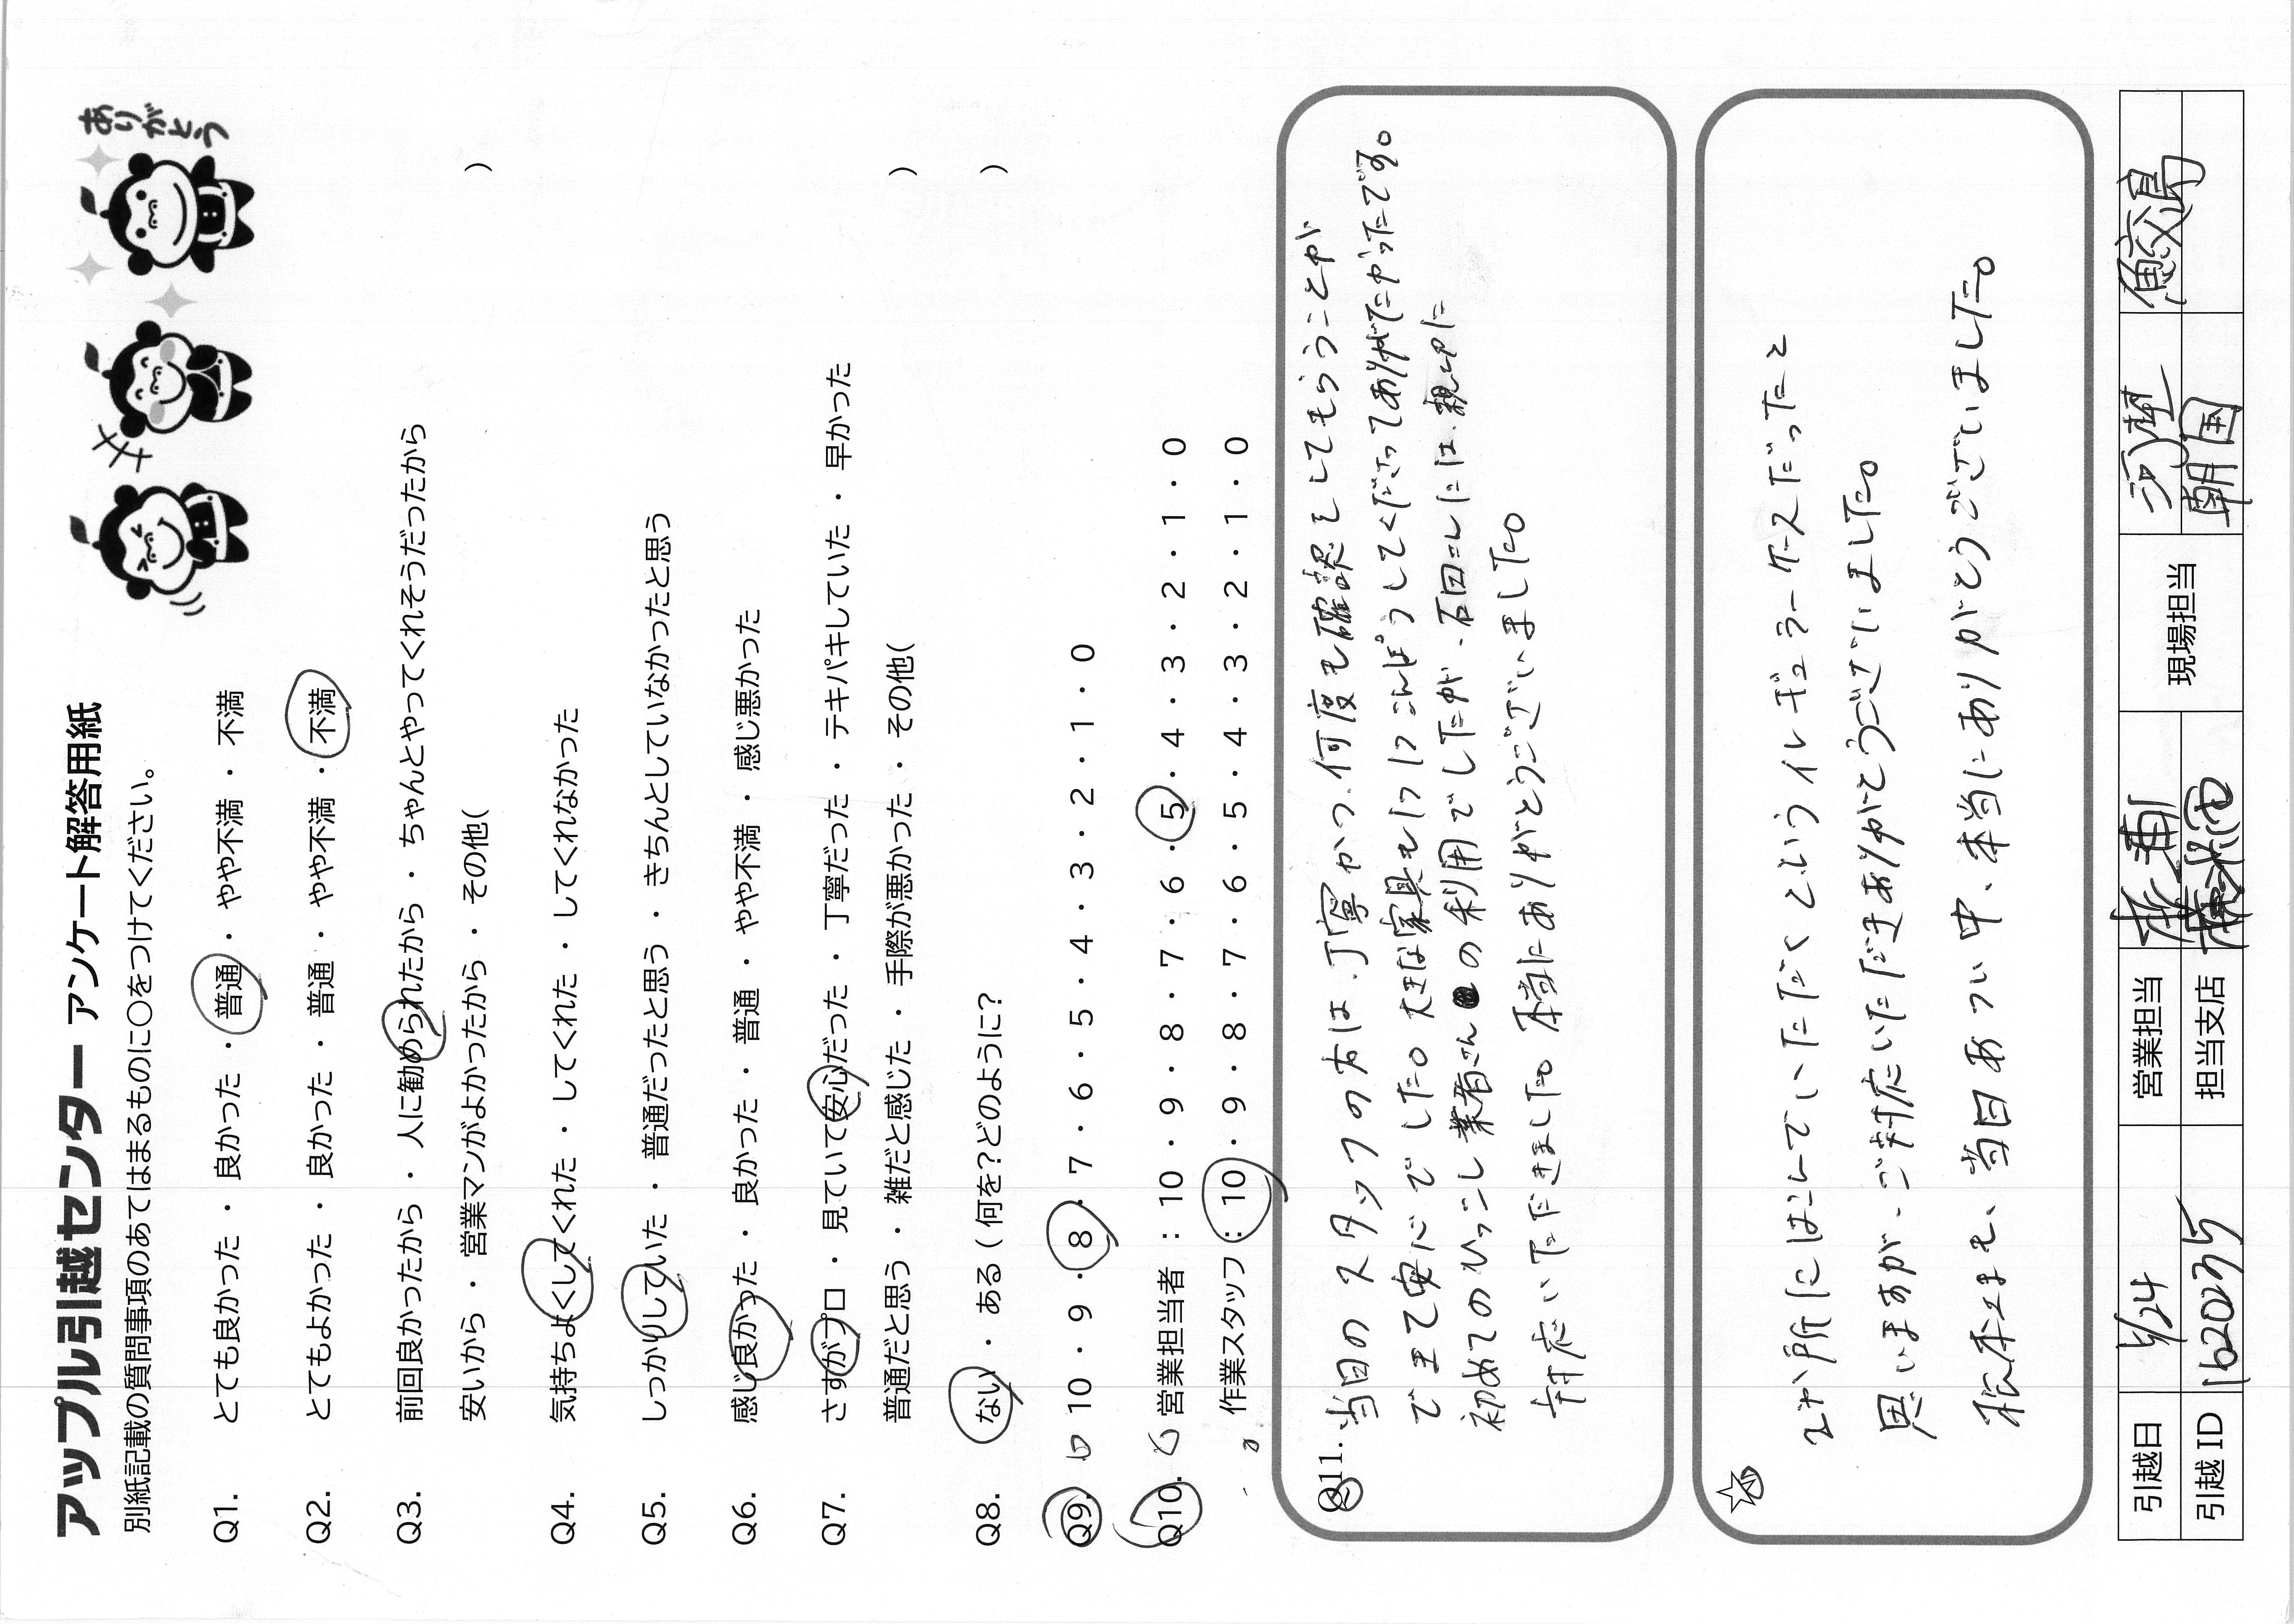 ありがとう
アップル引越センター アンケート解答用紙
別紙記載の質問事項のあてはまるものに〇をつけてください。
Q1. とても良かった ・ 良かった ・ 普通 ・ やや不満 ・ 不満
Q2. とてもよかった ・ 良かった ・ 普通 ・ やや不満 ・ 不満
Q3. 前回良かったから ・ 人に勧められたから ・ ちゃんとやってくれそうだったから
安いから ・ 営業マンがよかったから ・ その他( )
Q4. 気持ちよくしてくれた ・ してくれた ・ してくれなかった
Q5. しっかりしていた ・ 普通だったと思う ・ きちんとしていなかったと思う
Q6. 感じ良かった ・ 良かった ・ 普通 ・ やや不満 ・ 感じ悪かった
Q7. さすがプロ ・ 見ていて安心だった ・ 丁寧だった ・ テキパキしていた ・ 早かった
普通だと思う ・ 雑だと感じた ・ 手際が悪かった ・ その他( )
Q8. ない ・ ある ( 何を?どのように? )
Q9. 10 ・ 9 ・ 8 ・ 7 ・ 6 ・ 5 ・ 4 ・ 3 ・ 2 ・ 1 ・ 0
Q10. 営業担当者 : 10 ・ 9 ・ 8 ・ 7 ・ 6 ・ 5 ・ 4 ・ 3 ・ 2 ・ 1 ・ 0
作業スタッフ : 10 ・ 9 ・ 8 ・ 7 ・ 6 ・ 5 ・ 4 ・ 3 ・ 2 ・ 1 ・ 0
Q11. 当日のスタッフの方は、丁寧かつ、何度も確認をしてもらうことが
できて安心でした。大きな家具もにこんぽうしてくださってありがたかったです。
初めてのひっこし業者さんの利用でしたが、石田さんには、親切に
対応いただきました。本当にありがとうございました。
☆
2か所にはこんでいただくというイレギュラーケースだったと
思いますが、ご対応いただきありがとうございました。
松本さまも、当日あつい中、本当にありがとうございました。
引越日 5/24 営業担当 現場担当 河野 鮫島
引越 ID 162035 担当支店 朝国